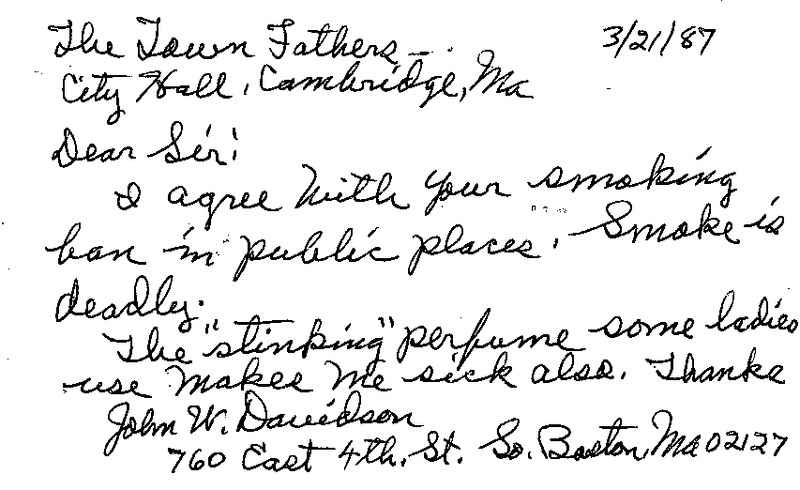 The Town Fathers — .
3/21/87
City Hall, Cambridge, Ma
Dear Sir:
I agree with your smoking
ban in public places. Smoke is
deadly.
The "stinking" perfume some ladies
use makes me sick also. Thanks
John W. Davidson
760 East 4th. St. So. Boston, Ma 02127